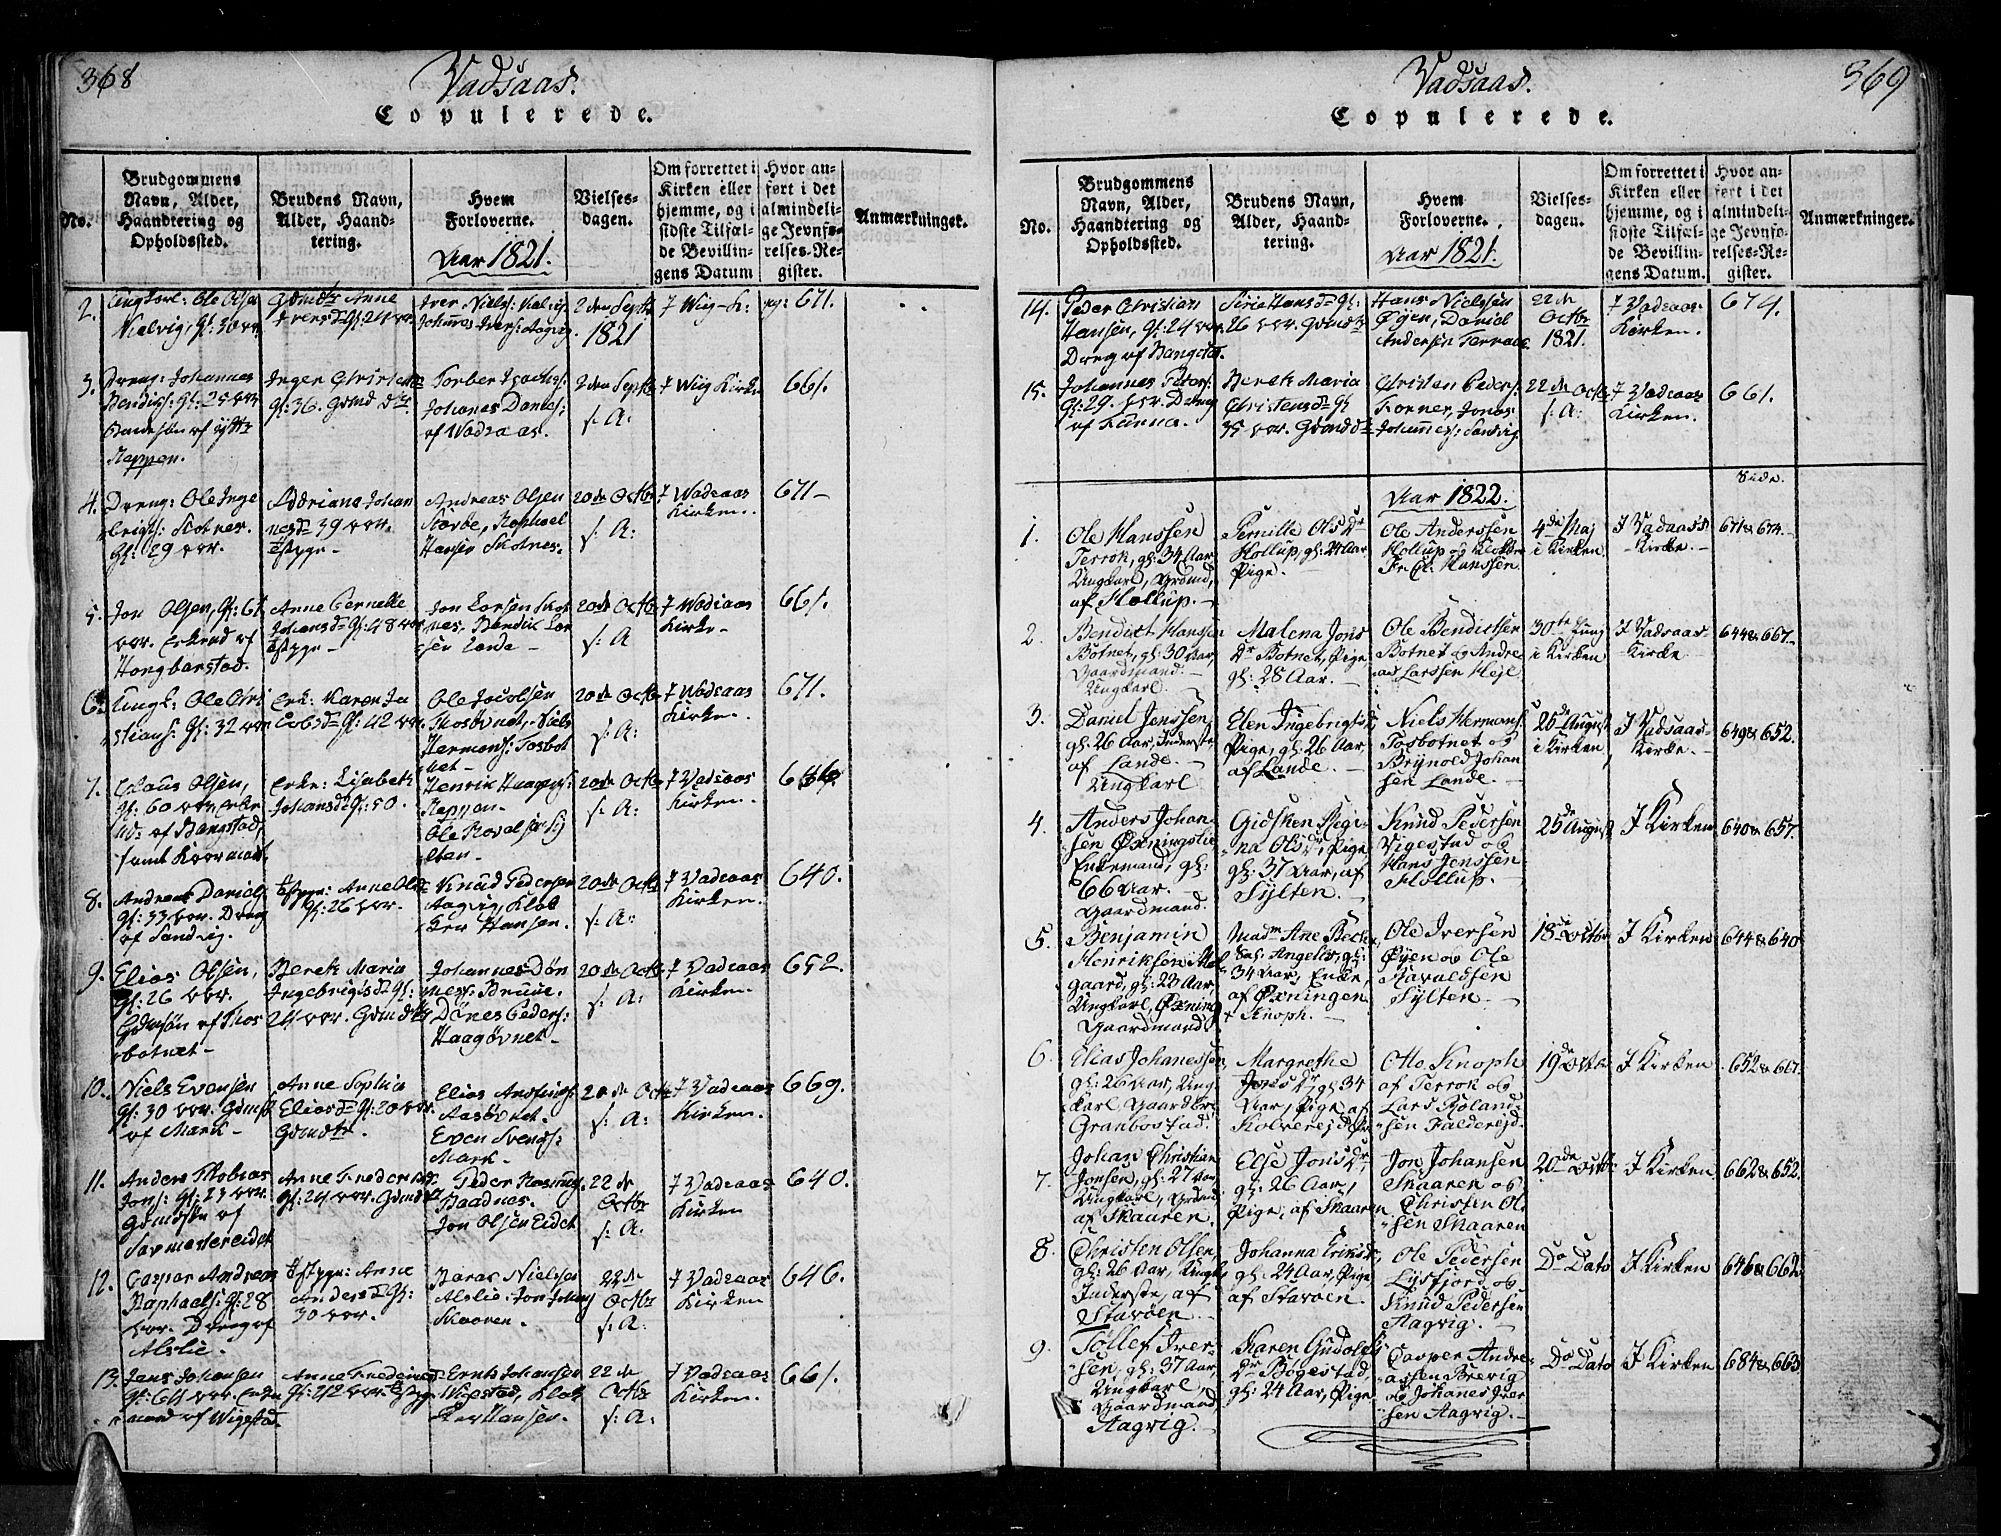 368
Vadsaas.
Copulerede.
No.
Brudgommens
Navn, Alder,
Haandtering og
Opholdssted.
Brudens Navn,
Alder, Haand-
tering.
Hvem
Forloverne.
Aar 1821.
Vielses-
dagen.
Om forrettet i
Kirken eller
hjemme, og i
sidste Tilfæl-
de Bevillin-
gens Datum
Hvor an-
ført i det
almindeli-
ge Jevnfø-
relses-Re-
gister.
Anmærkninger.
2.
Ungkarl: Ole Olsen
Kalvig, Gl: 30 aar
Anne
Iversdr Gl: 24 aar
Iver Niels: Kalvig
Johannes Ivers: Aagvig
2den Septbr
1821
I Wiig-K:
pg: 671.
3.
Dreng: Johannes
Bendixs: Gl: 25 aar
af ytre
Reppen.
Inger Christens
Gl: 36.
Torber
Johanes Daniels:
af Wadsaas.
2den Septbr
s: A:
I Wiig Kirke
661.
4.
Dreng: Ole Inge
brigts: Kotnes.
Gl: 29 aar.
Adriana Johan
nesdr 39 aar.
Andreas Olsen
Raphael
Hansen Skotnes.
20de Octbr
s: A:
I Wadsaas
Kirken.
671-
5.
Jon Olsen, Gl: 61
aar. Enkemd af
Hongbarstad.
Anne Pernelle
Johansdr Gl: 48 aar
Jon Larsen Skot
nes, Bendix Lar
sen Lande-
20de Octbr
s: A
I Wadsaas
Kirke-
661.
6.
Ungk: Ole Chri
stians: Gl: 32 aar
Enk: Karen Ja
cobsdr Gl: 42 aar
Ole Jacobsen
Mosøvnet, Niels
Hermans: Tosbot
net-
20de Octbr
s: A:
I Wadsaas
Kirken.
671.
7.
Claus Olsen,
Gl: 60 aar, Enke
md: af Bangstad,
samt Kaarmand.
Enke: Lisabeth
Johansdr Gl: 50.
Henrik Haagens:
Reppen.
Ole
Sylten-
20de Octbr
s: A:
I Vadsaas
Kirken.
8.
Andreas Daniels:
Gl: 33 aar. Dreng
af Sandvig.
Anne Olsdr
Gl: 26 aar.
Knud Pedersen
Aagvig, Klok
ker Hansen.
20de Octbr
s: A:
I Vadsaas
Kirken.
640.
9.
Elias Olsen,
Gl: 26 aar.
Gdmsøn af Thos
botnet-
Berek Maria
Ingebrigtsdr Gl:
24 aar. Gdmdtr
Johannes Døn
nes: Bruue.
Dönes Peders:
Haagövnet-
20de Octbr
s: A:
I Vadsaas
Kirken.
652.
10.
Niels Evensen
Gl: 30 aar. Gdmsn
af Mark-
Anne Sophia
Eliasdr Gl: 20 aar.
Gdmdtr.
Elias
Aasövnet.
Even Svends:
Mark-
20de Octbr
s: A:
I Vadsaas
Kirken.
669.
11.
Anders Thobias
Jons: Gl: 27 aar.
af
Anne Fredriksdr
Gl: 24 aar. Gdmdtr
Peder Rasmus:
Baadnes.
Jon Olsen Eidet
22de
Octbr
s: A:
I Vadsaas
Kirken
640.
12.
Caspar Andreas
Raphaels: Gl: 28
aar. Dreng af
Alslie.
Anne
Andersdr Gl:
30 aar.
Nielsen
Alslie: Jon
Skaaren.
22de
Octbr
s: A:
I Vadsaas
Kirken.
646.
13.
Jens Johansen
Gl: 64 aar. Enke
mand af Wigestad.
Anne
Gl: 42 aar
Johansen
Wigestad, Klok
ker Hansen.
22de
Octbr
s: A:
I Vadsaas
Kirken.
661.
Vadsaas.
369
Copulerede.
No.
Brudgommens
Navn, Alder,
Haandtering og
Opholdssted.
Brudens Navn,
Alder, Haand-
tering.
Hvem
Forloverne.
Aar 1821.
Vielses-
dagen.
Om forrettet i
Kirken eller
hjemme, og i
sidste Tilfæl-
de Bevillin-
gens Datum.
Hvor an-
ført i det
almindeli-
ge Jevnfø-
relses-Re-
gister.
Anmærkninger.
14.
Peder Christian
Hansen, Gl: 24 aar.
Dreng af Bangstad.
Siria Hansdr Gl:
26 aar. Gdmdtr
Hans Nielssen
Öyen, Daniel
Andersen Terraae
22de
Octbr
1821.
I Vadsaas
Kirken.
674.
15.
Johannes Peters:
Gl: 29. Dreng
af
Berek Maria
Christensdr Gl
35 aar. Gdmdtr
Christen Peders:
Jonas
Johannes: Sandvig.
22de Octbr
s: A:
I Vadsaas
Kirken.
661.
Aar 1822.
Side.
1.
Ole Hanssen
Terrok, gl: 34 Aar,
Ungkarl, Grdmd,
af Hollup.-
Pernille Olsdr
Hollup, gl: 24 Aar
Pige.-
Ole Anderssen
Hollup og Klokker
Fr. Chr: Hanssen.
4de Maj
i Kirken
I Vadsaas
Kirke.-
671 & 674.-
2.
Bendixt Hanssen
Botnet, gl: 30 Aar,
Gaardmand.
Ungkarl.
Malena Jons
dr Botnet, Pige
gl: 28 Aar.-
Ole Bendictsen
Botnet og Andre
as Larssen Hejl
30te Juny
i Kirken
I Vadsaas-
Kirke
644 & 667.-
3.
Daniel Jenssen,
gl: 26 Aar, Inderste
af Lande.-
Ungkarl
Elen Ingebrigtsdr
Pige, gl: 26 Aar,
af Lande.-
Niels Hermans:
Tosbotnet og
Brynold Johan
sen Lande.-
25de August
i Kirken
I Vadsaas-
Kirke-
649 & 652.
4.
Anders Johan
sen Öxningslie
Enkemand, gl:
66 Aar.-
Gaardmand.
Gidsken Regi-
na Olsdr, Pige
gl: 37 Aar, af
Sylten.-
Knud Pedersen
Vigestad og
Hans Jenssen
Hollup.-
25de August
I Kirken
640 & 657.
5.
Benjamin
Henriksen
gaard, gl: 23 Aar,
Ungkarl, Öxning
Gaardmand
Madm Ane
Sal: Angells, gl:
34 Aar, Enke,
af Öxningen
Knoph.-
Ole Iversen
Öyen og Ole
Sylten.-
18de Octbr
I Kirken
644 & 640
6.
Elias Johanessen
gl: 26 Aar, Ung
karl, Gaardbr
Granbostad.
Margrethe
Jonsdr, gl: 34
Aar, Pige af
Kolverejd
Otto Knoph
af Terrok og
Lars Roland-
sen Falderejd.
19de Octbr
I Kirken
652 & 667.
7.
Johan Christian
Jonsen, gl: 27 Aar,
Ungkarl, Grdmd
af Skaaren.
Else Jonsdr
gl: 26 Aar,
Pige, af Skaaren
Jon Johansen
Skaaren og
Christen Ol
sen Skaaren
20de Octbr
I Kirken
662 & 652.
8.
Christen Olsen,
gl: 26 Aar, Ungk:
Inderste, af
Stavöen-
Johanna Eriksdr,
gl: 24 Aar, Pige
af Stavöen.
Ole Pedersen
Lysfjord og
Knud Pedersen
Aagvig.-
Do Dato
I Kirken
646 & 662
9.
Tollef Iver-
sen, gl: 37 Aar,
Ungkarl,
Gaardmand,
Aagvig.-
Karen Gudolfs
dr Bögestad,
gl: 24 Aar, Pige
Casper Andre-
assen Brevig
og Johanes Iver
sen Aagvig.-
Do Dato
I Kirken
684 & 663